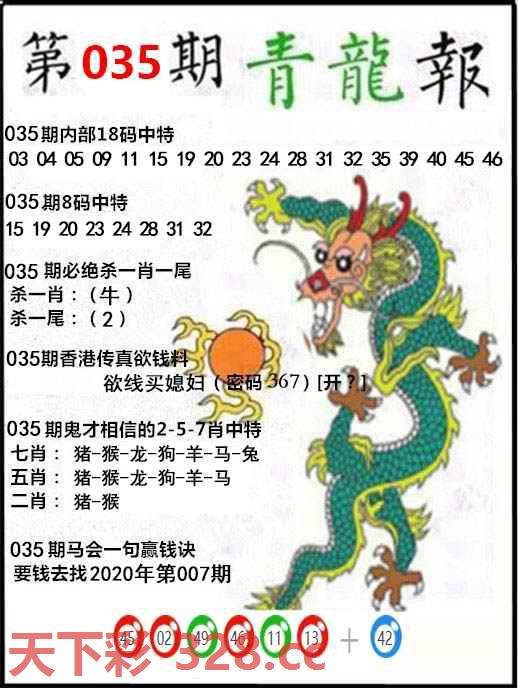 第035期青龍報
035期内部18码中特
03 04 05 09 11 15 19 20 23 24 28 31 32 35 39 40 45 46
035期8码中特
15 19 20 23 24 28 31 32
035 期必绝杀一肖一尾
杀一肖：（牛）
杀一尾：（2）
035期香港传真欲钱料
欲线买媳妇（密码367）[开？]
035期鬼才相信的2-5-7肖中特
七肖： 猪-猴-龙-狗-羊-马-兔
五肖： 猪-猴-龙-狗-羊-马
二肖： 猪-猴
035期马会一句赢钱诀
要钱去找2020年第007期
45 02 49 46 11 13 + 42
天下彩 328.cc